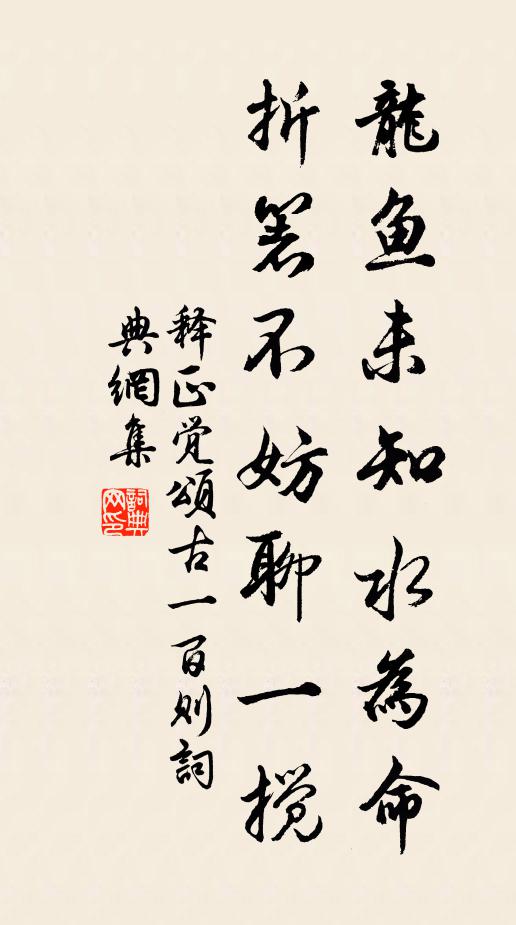 龍魚未知水為命
折箸不妨聊一搅
释正觉頌古一百则詞
典網集
詞典网印